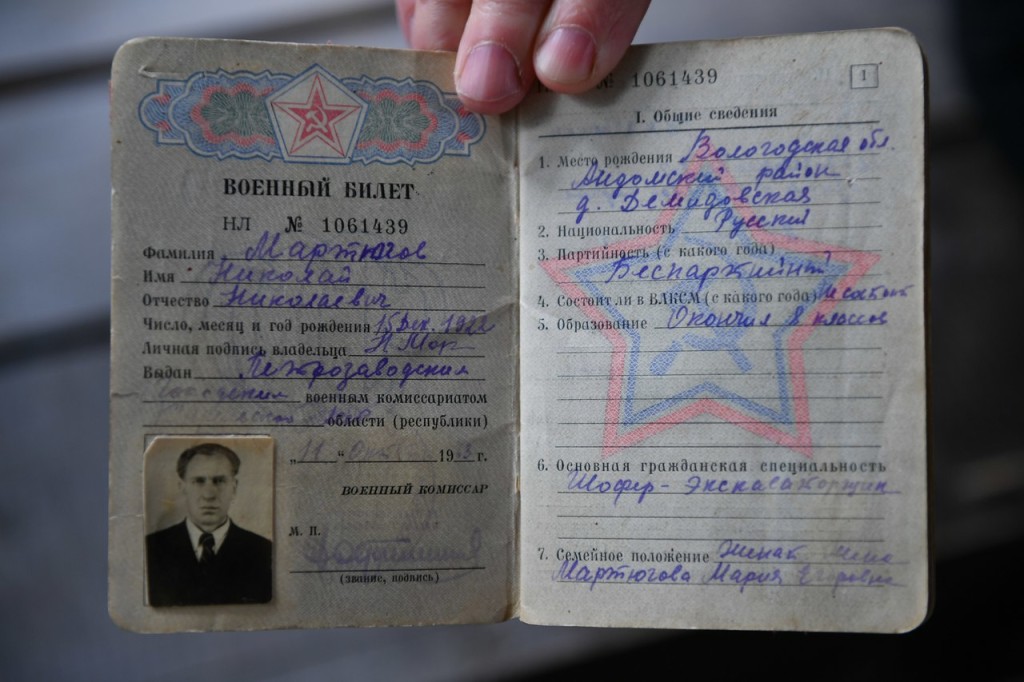 ВОЕННЫЙ БИЛЕТ
НЛ № 1061439
Фамилия Мартюгов
Имя Николай
Отчество Николаевич
Число, месяц и год рождения 15 Дек. 1922
Личная подпись владельца Н Мар
Выдан Петрозаводским
военным комиссариатом
области (республики)
„11“ 19 г.
ВОЕННЫЙ КОМИССАР
М. П.
(звание, подпись)
№ 1061439
1
I. Общие сведения
1. Место рождения Вологодская обл.
Андомский район
д. Демидовская
2. Национальность Русский
3. Партийность (с какого года)
Беспартийный
4. Состоит ли в ВЛКСМ (с какого года)
5. Образование Окончил 8 классов
6. Основная гражданская специальность
Шофер-
7. Семейное положение Женат жена
Мартюгова Мария Егоровна